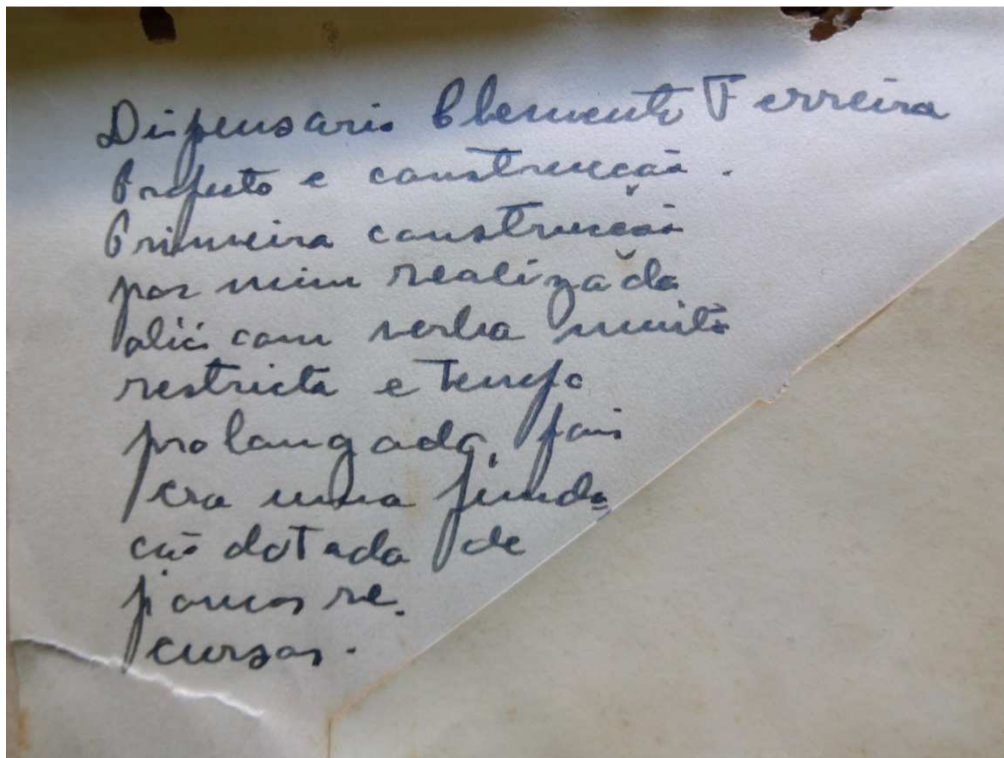 Dispensario Clemente Ferreira
Projecto e construcção.
Primeira construcção
por mim realizada
aliás com verba muito
restricta e tempo
prolongado, pois
era uma funda
ção dotada de
poucos re-
cursos.